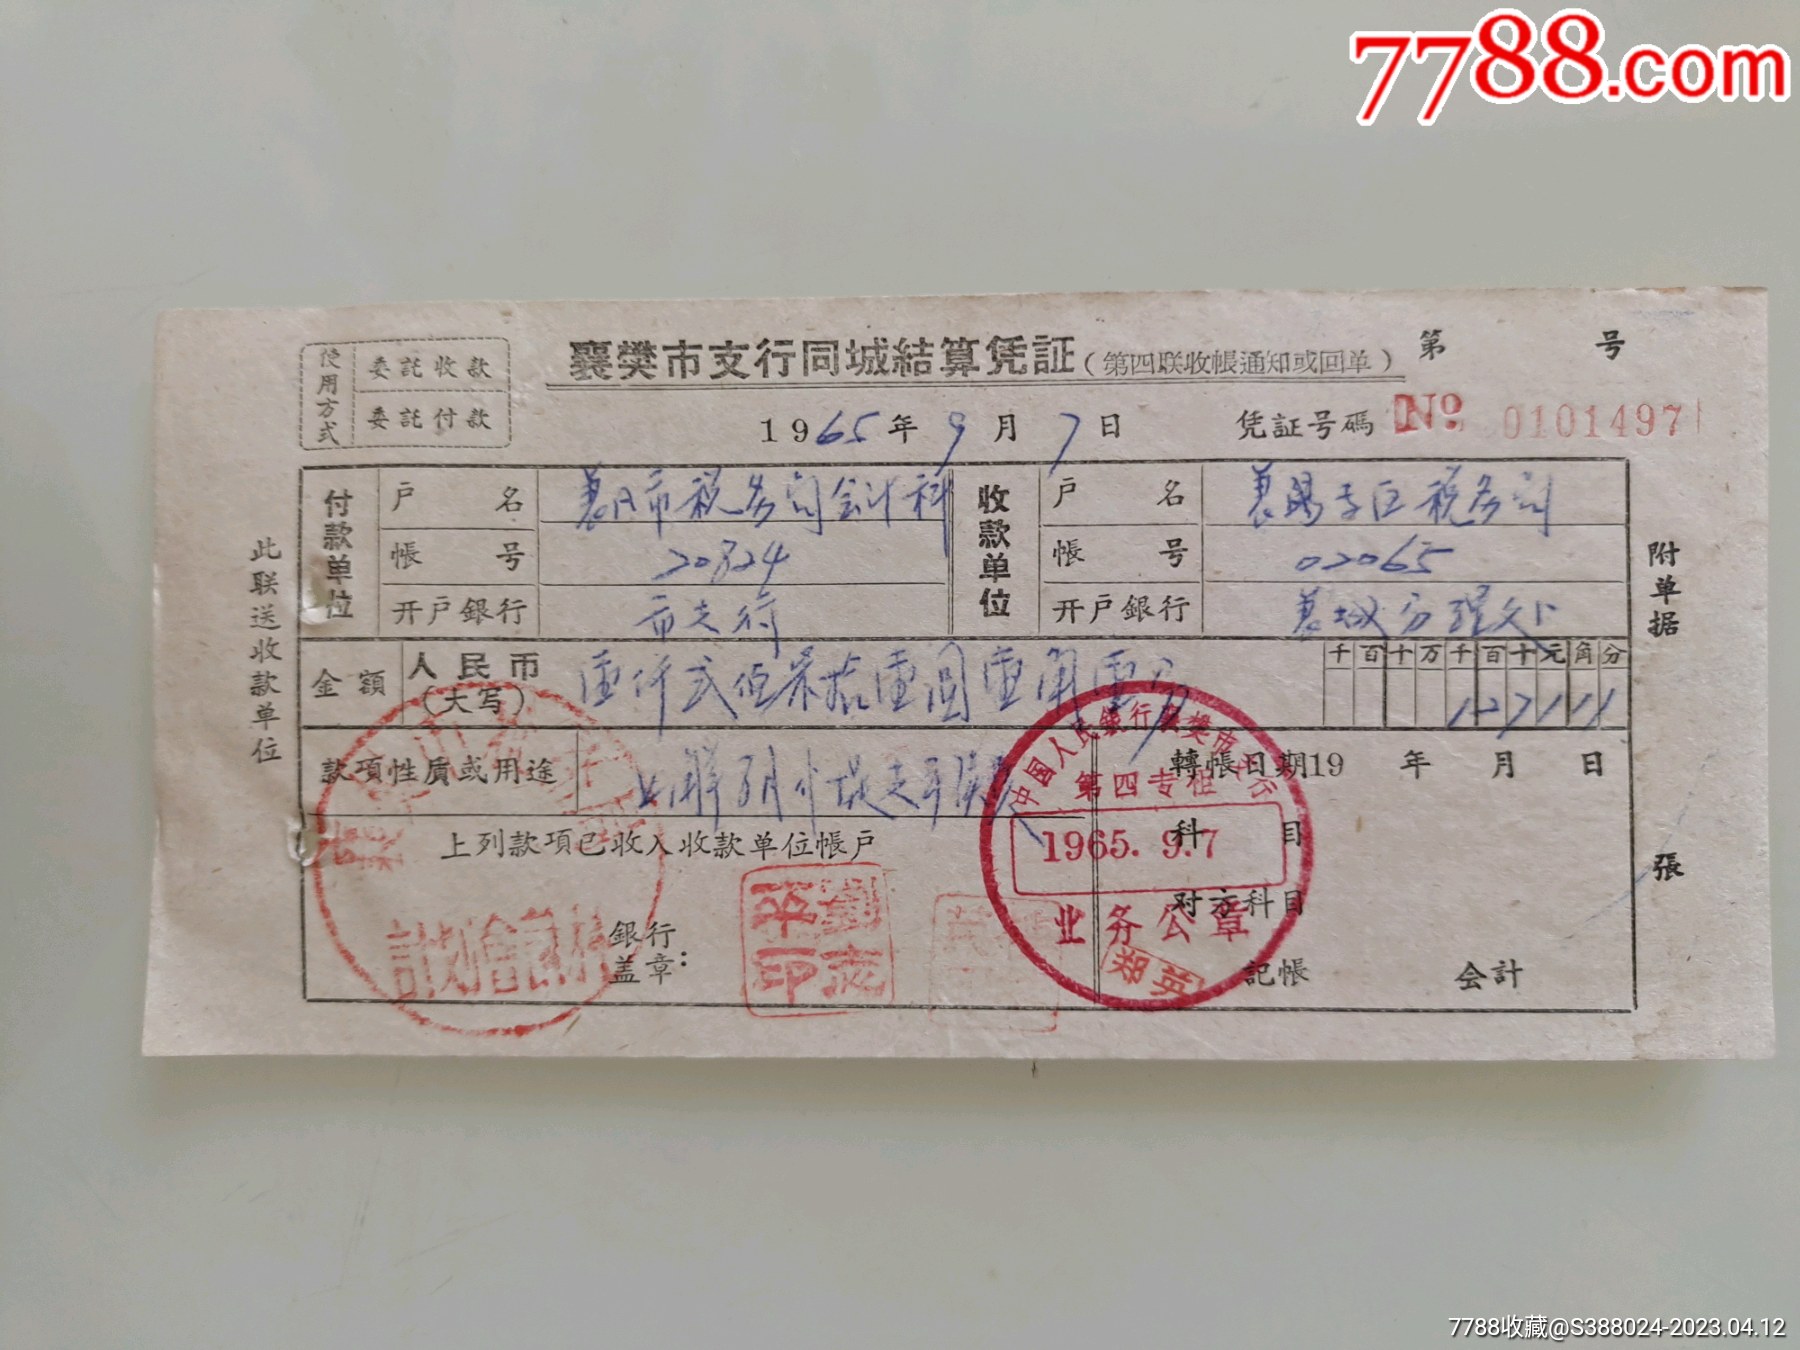 7788.com
使用方式
委託收款
委託付款
襄樊市支行同城結算凭証(第四联收帳通知或回单)
第 号
1965年9月7日
凭証号碼 No 0101497
此联送收款单位
付款单位
户名
市税务局会计科
帳号 20824
开户銀行 市支行
收款单位
户名
税务局
帳号 02065
开户銀行
附单据
張
金額
人民币
(大写)
壹仟弍佰柒拾壹圆壹角壹分
千百十万千百十元角分
127111
款項性质或用途
上列款項已收入收款单位帳户
銀行
盖章:
轉帳日期19 年 月 日
科目
对方科目
記帳 会計
中国人民銀行襄樊市
第四专柜
1965.9.7
业务公章
郑英
7788收藏@S388024-2023.04.12